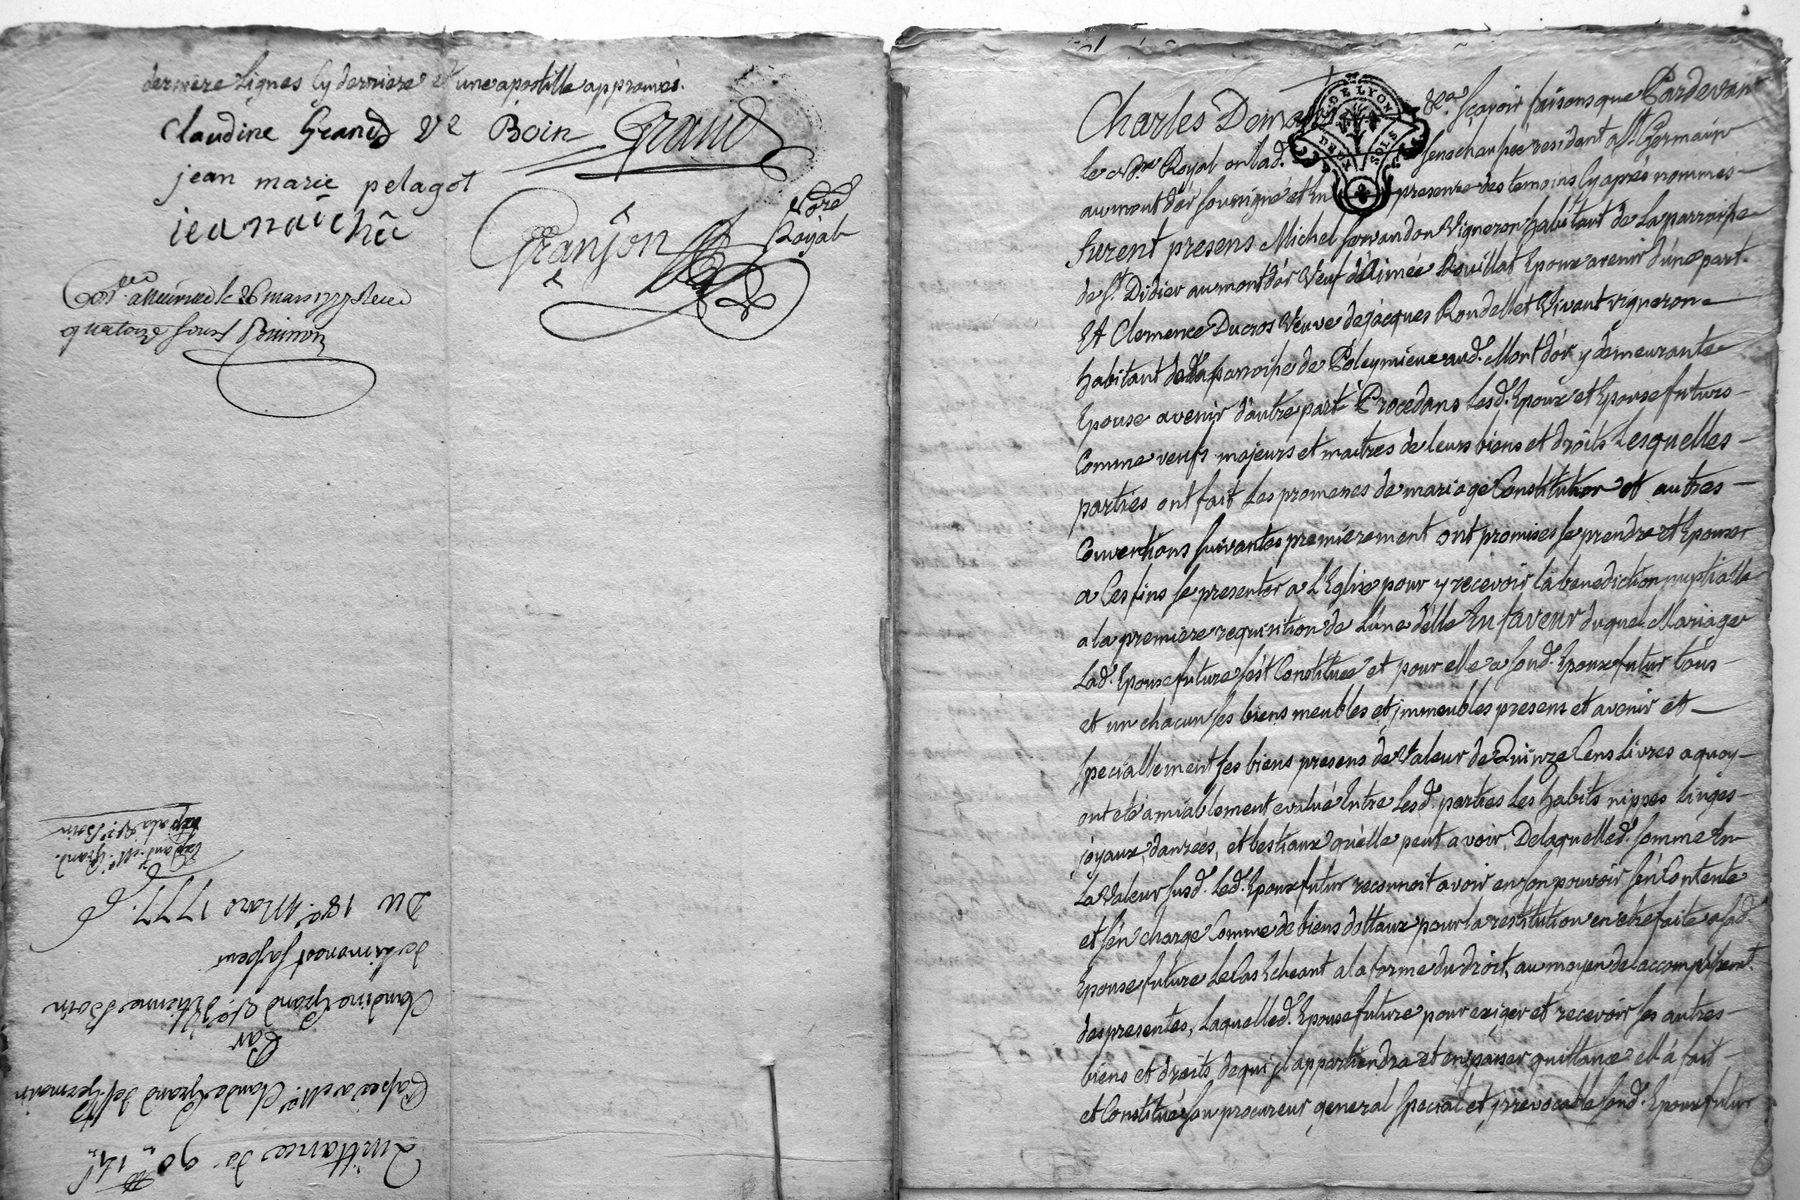 dernière lignes cy derniere et une apostille approuvés.
Claudine Grand Ve Boin Grand
jean marie pelagot
jea naîchû
Granjon Nore Royal
Con.lle a Neuville le 26 mars 1777 Reçu
quatorze sous Brirron
Quittance de 90 ll. 14 s.
Passée a Mr. Claude Grand de St Germain
Par
Claudine Grand Ve. d'Etienne Boin
de Limonest
Du 18e. Mars 1777.
Exp. a la Ve. Boin
Charles Dem DE LYON DEUX SOLS Sçavoir faisons que Pardevant
le Nre Royal en lad. Senechaussée résident a St. Germain
au mont d'or soussigné et en presence des temoins cy après nommés
furent presens Michel Vigneron habitant de la parroisse
de St. Didier au mont d'or Veuf d'Aimée Rouillat Epoux avenir d'une part.
Et Clemence Ducros Veuve de jacques Rondellet Vivant vigneron
habitant de la parroisse de Poleymieux aud. Mont d'or y demeurante
Epouse avenir d'autre part Procedans Lesd. Epoux et Epouse futurs
Comme veufs majeurs et maitres de leurs biens et droits Lesquelles
parties ont fait Les promesses de mariage Constitution et autres
Conventions suivantes premierement ont promises se prendre et Epouser
a Ces fins se presenter a L'Eglise pour y recevoir la benediction nuptialle
a la premiere requisition de Lune d'elle En faveur duquel Mariage
Lad. Epouse future s'est Constituée et pour elle a sond. Epoux futur tous
et un chacun ses biens meubles et jmmeubles presens et avenir et
specialement ses biens presens de Valeur de Quinze Cens Livres a quoy
ont eté amiablement evalué Entre Lesd. parties Les habits nippes linges
joyaux, danrées, et bestiaux qu'elle peut avoir, De laquelled. somme En
La Valeur susd. Led. Epoux futur reconnoit avoir en son pouvoir s'en Contente
et s'en charge Comme de biens dottaux pour la restitution en etre faite a lad.
Epouse future Le Cas Echeant a la forme du droit, au moyen de laccomplissemt.
des presentes, Laquelled. Epouse future pour exiger et recevoir ses autres
biens et droits de qui jl appartiendra et en passer quittance ell'a fait
et Constitué son procureur general special et jrrevocable sond. Epoux futur